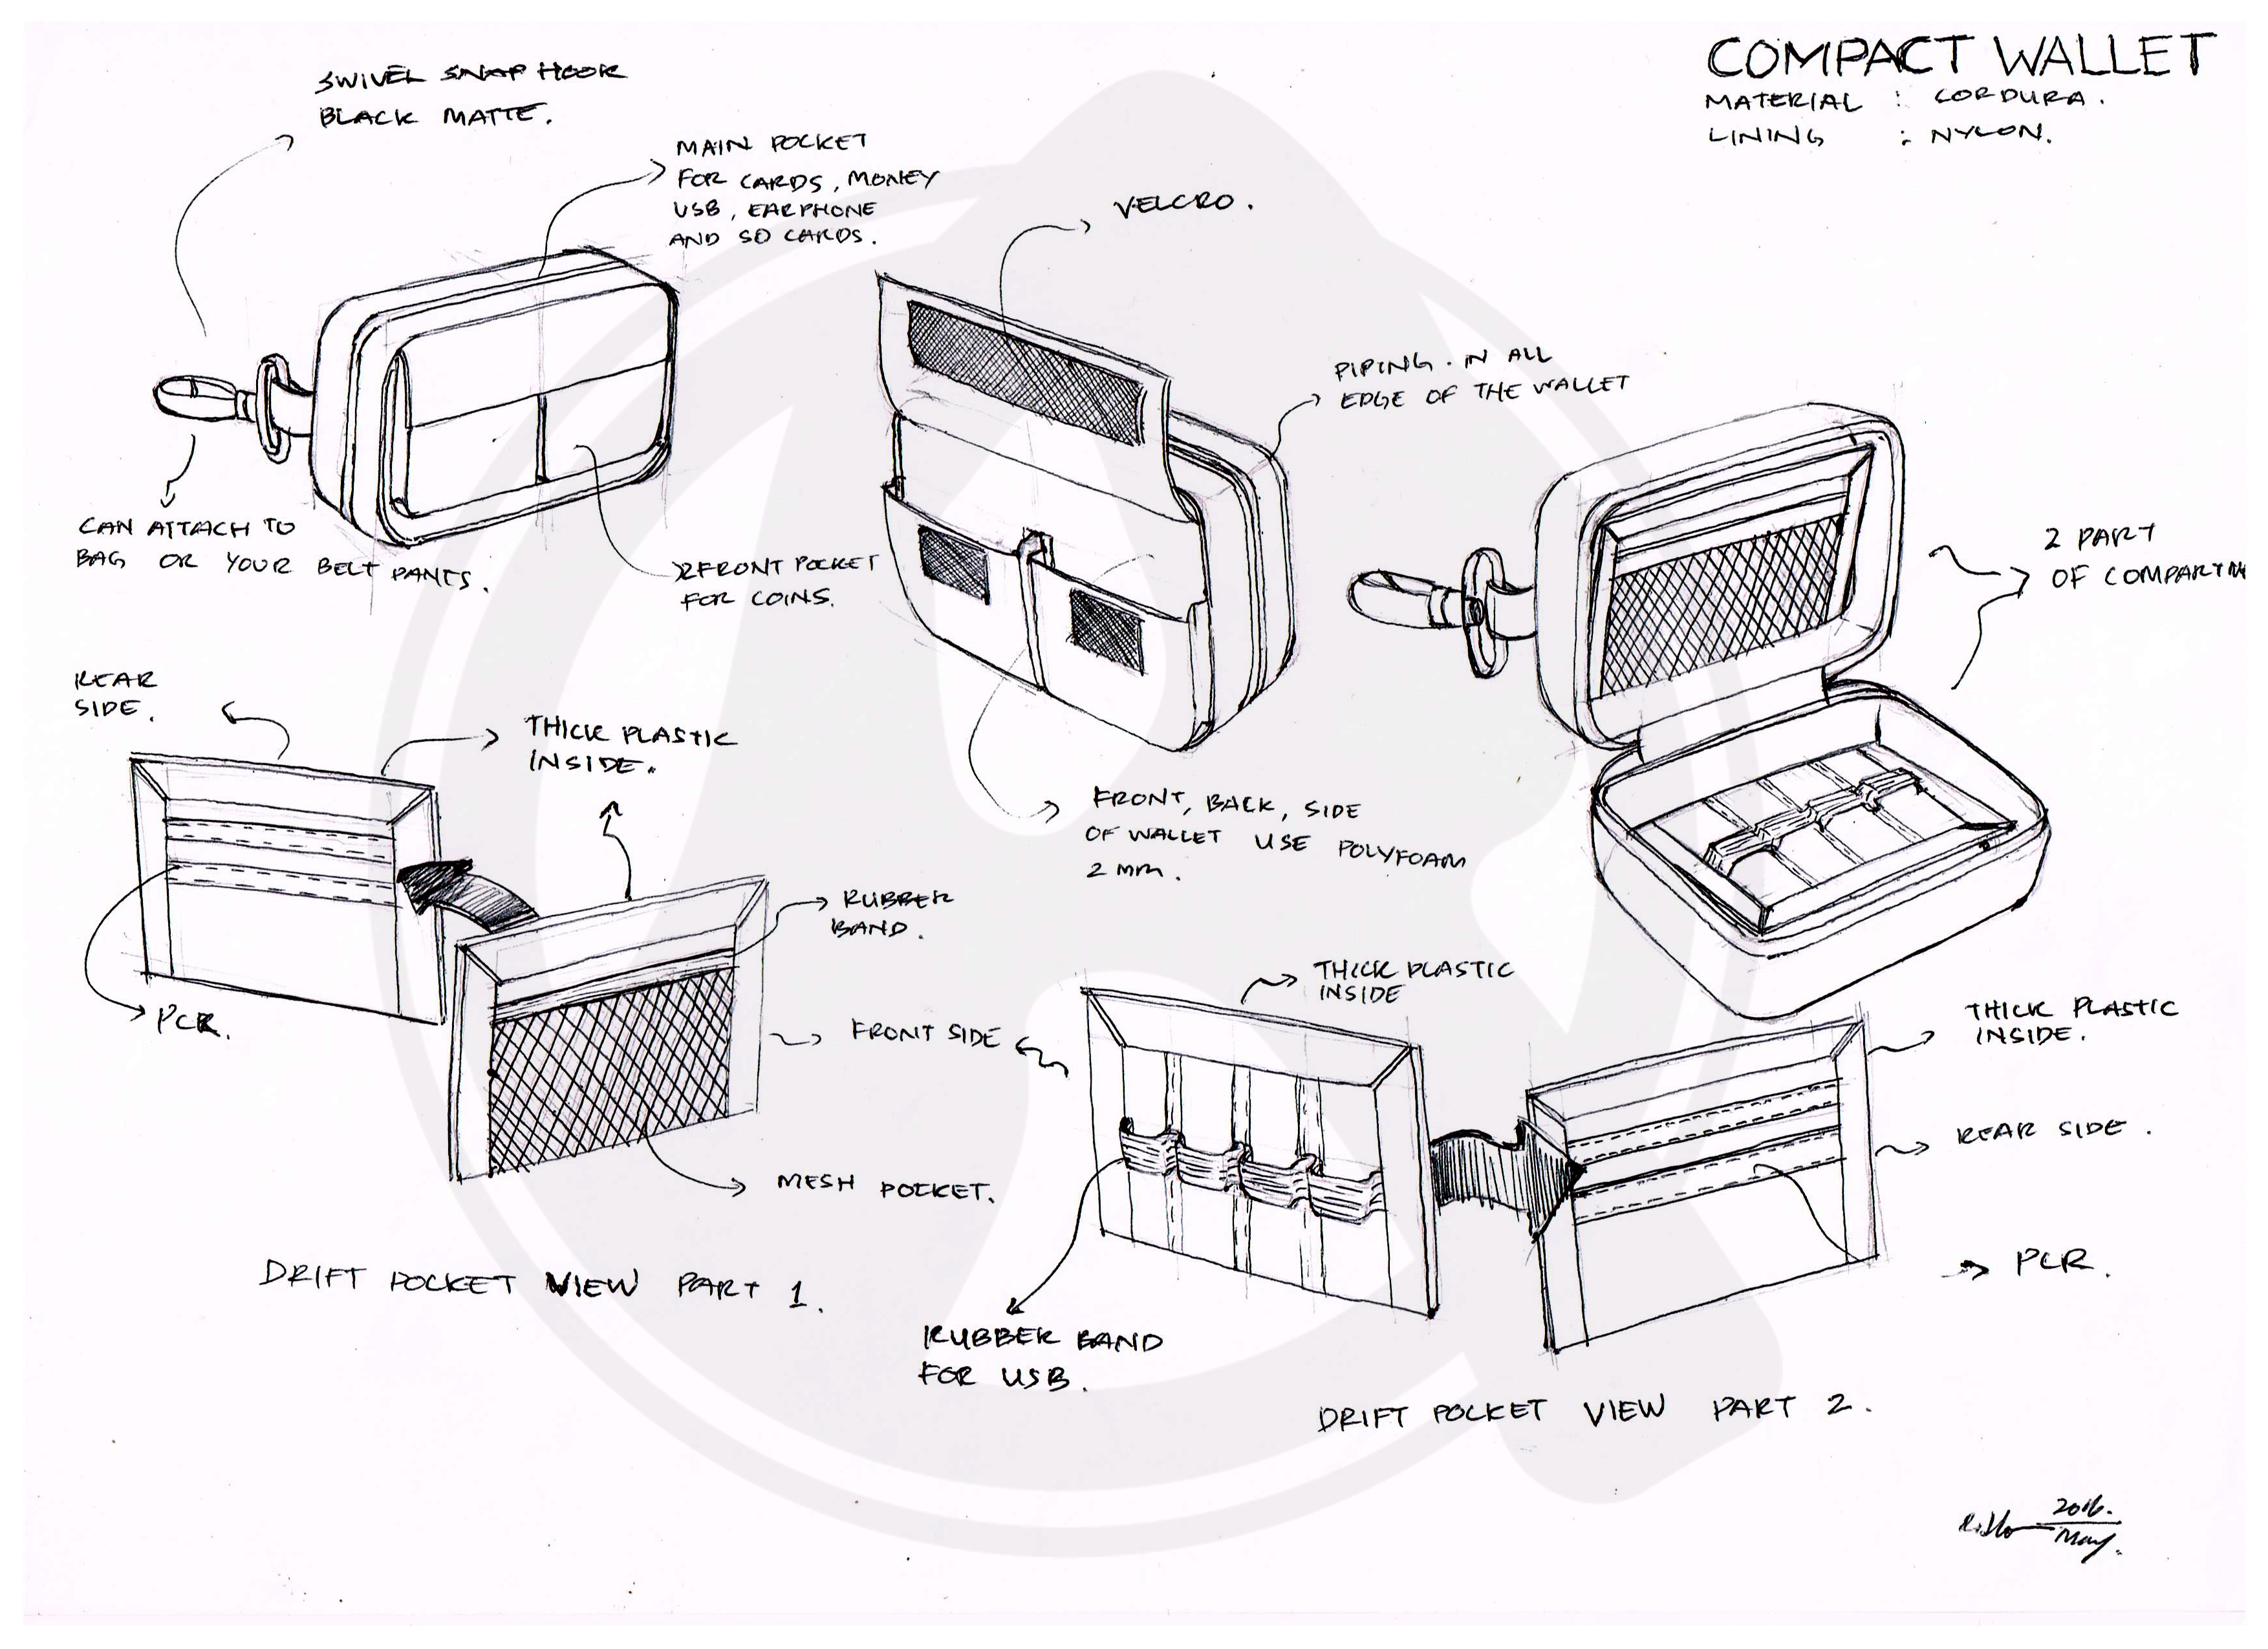 COMPACT WALLET
MATERIAL : CORDURA.
LINING : NYLON.
SWIVEL SNAP HOOK
BLACK MATTE.
MAIN POCKET
FOR CARDS, MONEY
USB, EARPHONE
AND SD CARDS.
VELCRO.
PIPING. IN ALL
EDGE OF THE WALLET
CAN ATTACH TO
BAG OR YOUR BELT PANTS.
2 FRONT POCKET
FOR COINS.
2 PART
OF COMPARTM
REAR
SIDE.
THICK PLASTIC
INSIDE.
FRONT, BACK, SIDE
OF WALLET USE POLYFOAM
2 MM.
RUBBER
BAND.
PCR.
FRONT SIDE
THICK PLASTIC
INSIDE
THICK PLASTIC
INSIDE.
REAR SIDE.
MESH POCKET.
PCR.
DRIFT POCKET VIEW PART 1.
RUBBER BAND
FOR USB.
DRIFT POCKET VIEW PART 2.
2016.
May.